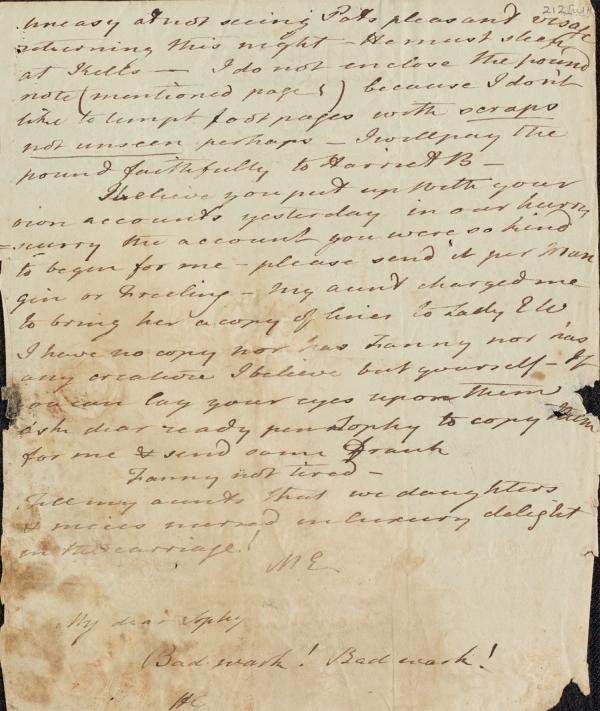 uneasy at not seeing Pats pleasant visage
returning this night - He must sleep
at Kells — I do not enclose the pound
note (mentioned page 5) because I don't
like to tempt foot pages with scraps
not unseen perhaps - I will pay the
pound faithfully to Harriet B -
I believe you put up with your
own accounts yesterday in our hurry
=scurry the account you were so kind
to begin for me - please send it per Man
gin or Freeling - My aunt charged me
to bring her a copy of lines to Lady E W
I have no copy nor has Fanny nor has
any creature I believe but yourself - If
you can lay your eyes upon them
ask dear ready pen Sophy to copy them
for me & send same Frank
Fanny not tired -
Tell my aunts that we daughters
& nieces in luxury delight
in the carriage!
ME
My dear Sophy
Bad wash! Bad wash!